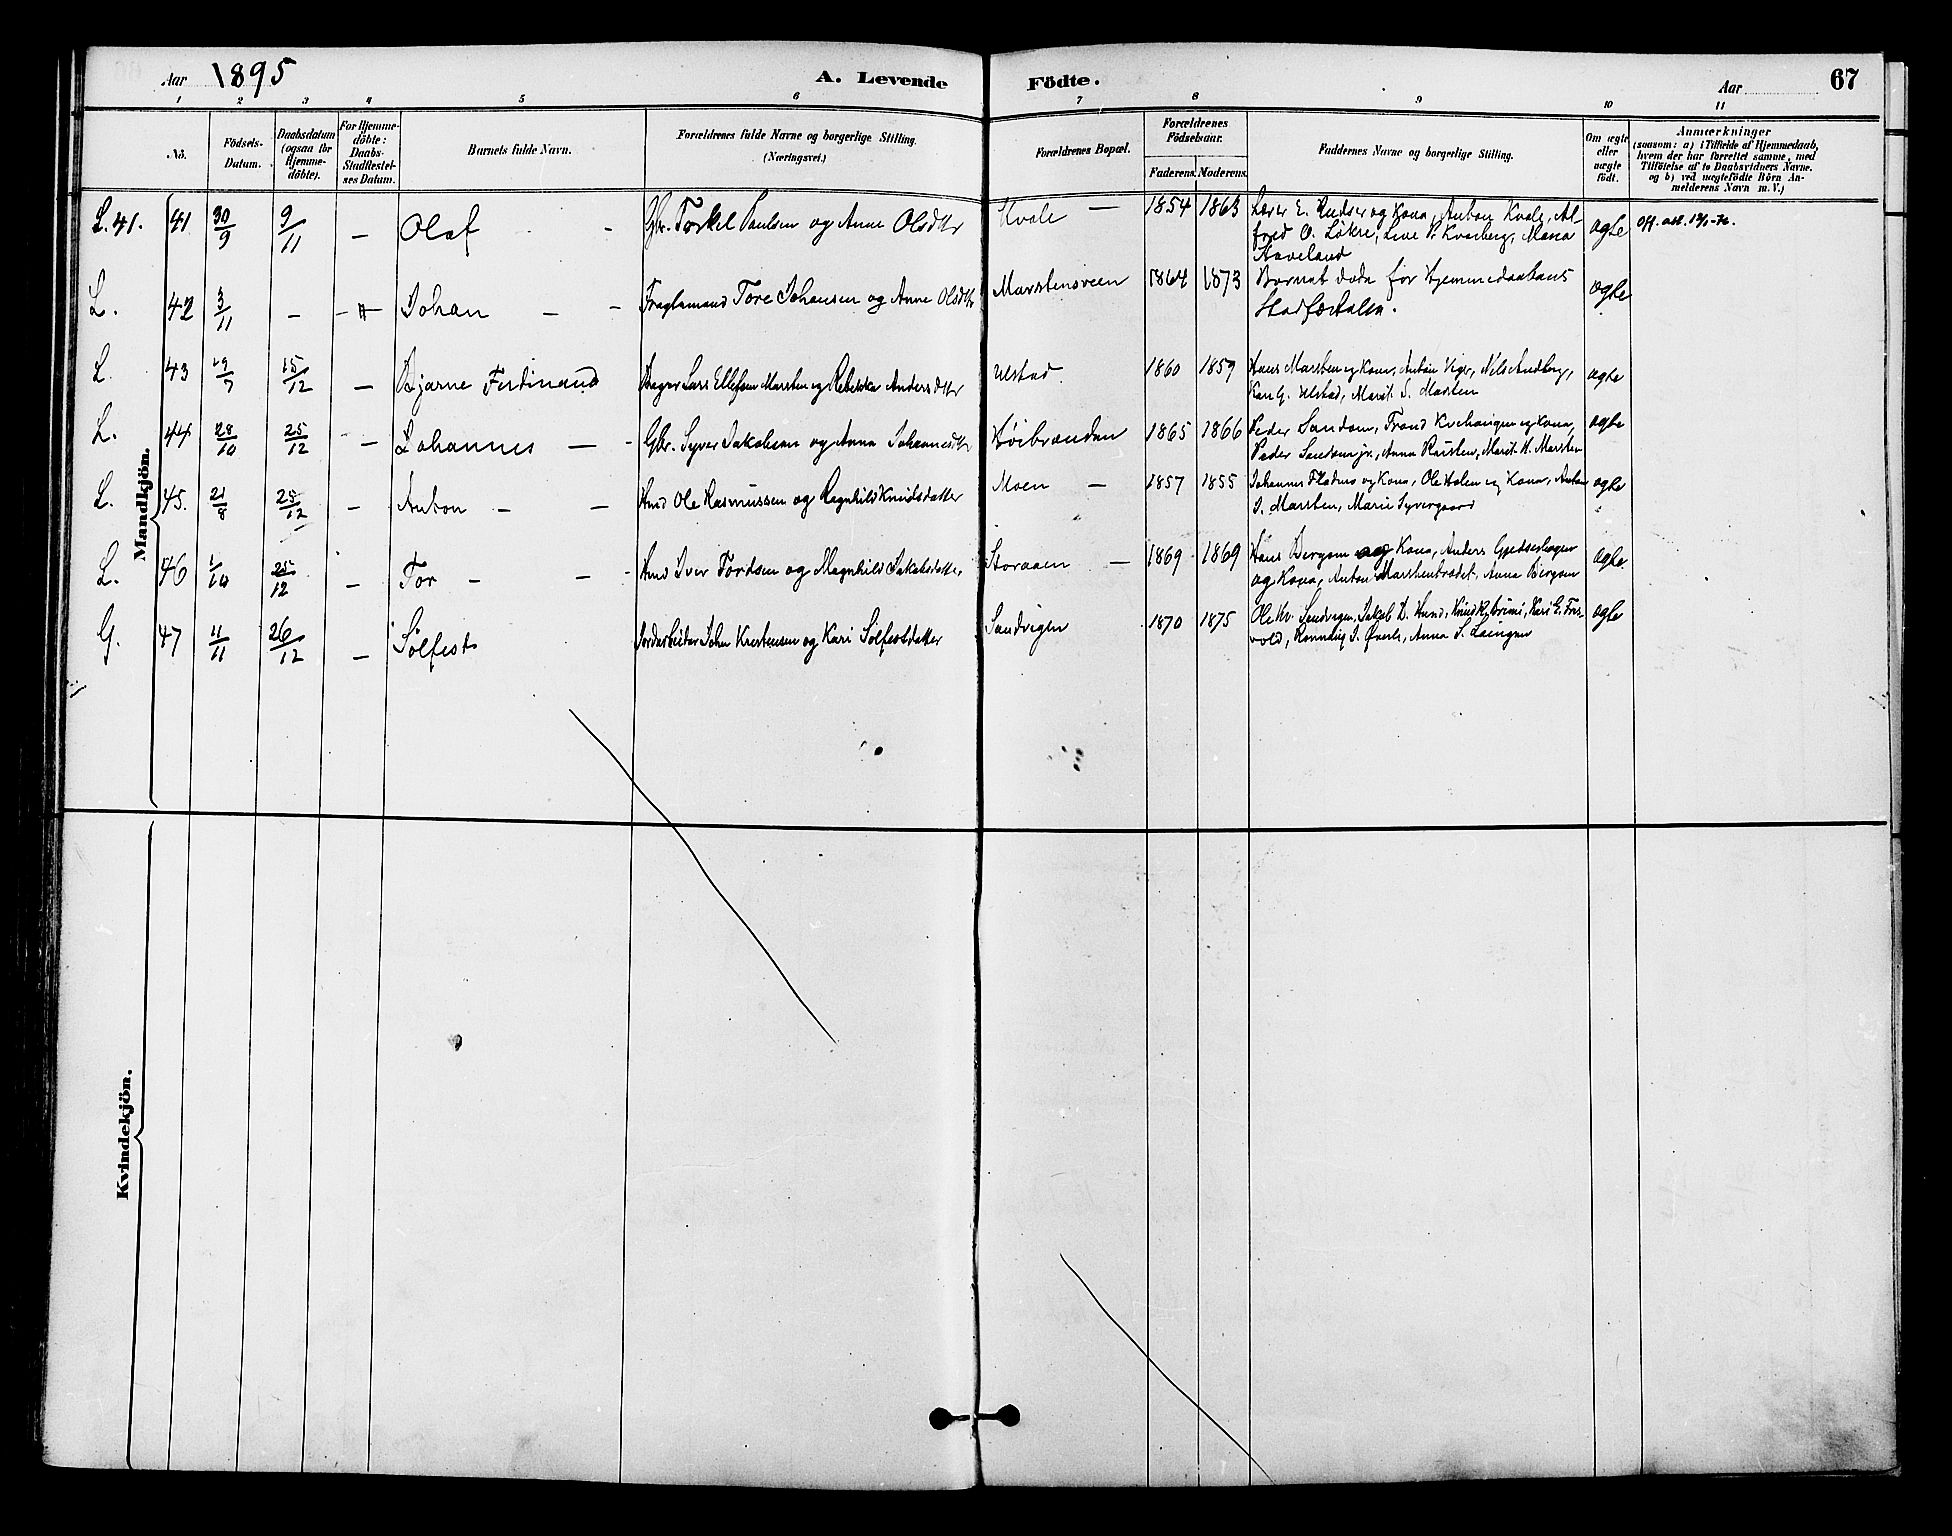 Aar 1895 A. Levende Födte. Aar 67
1 2 3 4 5 6 7 8 9 10 11
No.
Födsels-
Datum.
Daabsdatum
(ogsaa for
Hjemme-
döbte).
For Hjemme-
döbte:
Daabs-
Stadfæstel-
ses Datum.
Barnets fulde Navn.
Forældrenes fulde Navne og borgerlige Stilling.
(Næringsvei.)
Forældrenes Bopæl.
Forældrenes
Födselsaar.
Faderens. Moderens.
Faddernes Navne og borgerlige Stilling.
Om ægte
eller
uægte
födt.
Anmærkninger
(saasom: a) i Tilfælde af Hjemmedaab,
hvem der har forrettet samme, med
Tilföielse af to Daabsvidners Navne.
og b) ved uægtefödte Börn An-
melderens Navn m. V.)
Mandkjön.
L. 41. 41 30/9 9/11 — Olaf - - Gbr. Torkel Paulsen og Anne Olsdtr Kvale — 1854 1863 Lærer E. Rudser og Kona, Anton Kvale, Al
fred O. Løkre, Live P. Kvarberg, Maria
Haveland
ægte
L. 42 3/11 — Johan — — Fragtemand Tore Johansen og Anne Olsdtr Marstensveen 1864 1873 Barnet døde før Hjemmedaabens
Stadfæstelse.
ægte
L. 43 19/7 15/12 — Bjarne Ferdinand Bager Lars Ellefsen Marsten og Rebekka Andersdtr Ulstad 1860 1859 Hans Marsten og Kona, Anton Viger, Nils Sandberg,
Kari G. Ulstad, Marit S. Marsten
ægte
L. 44 28/10 25/12 — Johannes — - Gbr. Syver Jakobsen og Anna Johannesdtr Høibrænden 1865 1866 Peder Sandom, Trond Kvehaugen og Kona,
Peder Sandom jr., Anna Rusten, Marit H. Marsten
ægte
L. 45. 21/8 25/12 — Anton — — Hmd Ole Rasmussen og Ragnhild Knudsdatter Moen — 1857 1855 Johannes Fladmo og Kona, Ole Holen og Kona, Anton
I. Marsten, Marie Syvergaard
ægte
L. 46 1/10 25/12 — Tor - — Hmd Iver Tordsen og Magnhild Jakobsdatter, Storaaen — 1869 1869 Hans Bergom og Kona, Anders Gjedserhagen
og Kona, Anton Marstenbrødet, Anna Bergom
ægte
G. 47 11/11 26/12 — Sølfest Jordarbeider John Kristensen og Kari Sølfestdatter Sandvigen 1870 1875 Ole Kv. Sandvigen, Jakob D. Hund, Knud R. Brimi, Kari E. Fris-
vold, Rønnaug I. Øverli, Anna S. Loingen
ægte
Kvindekjön.